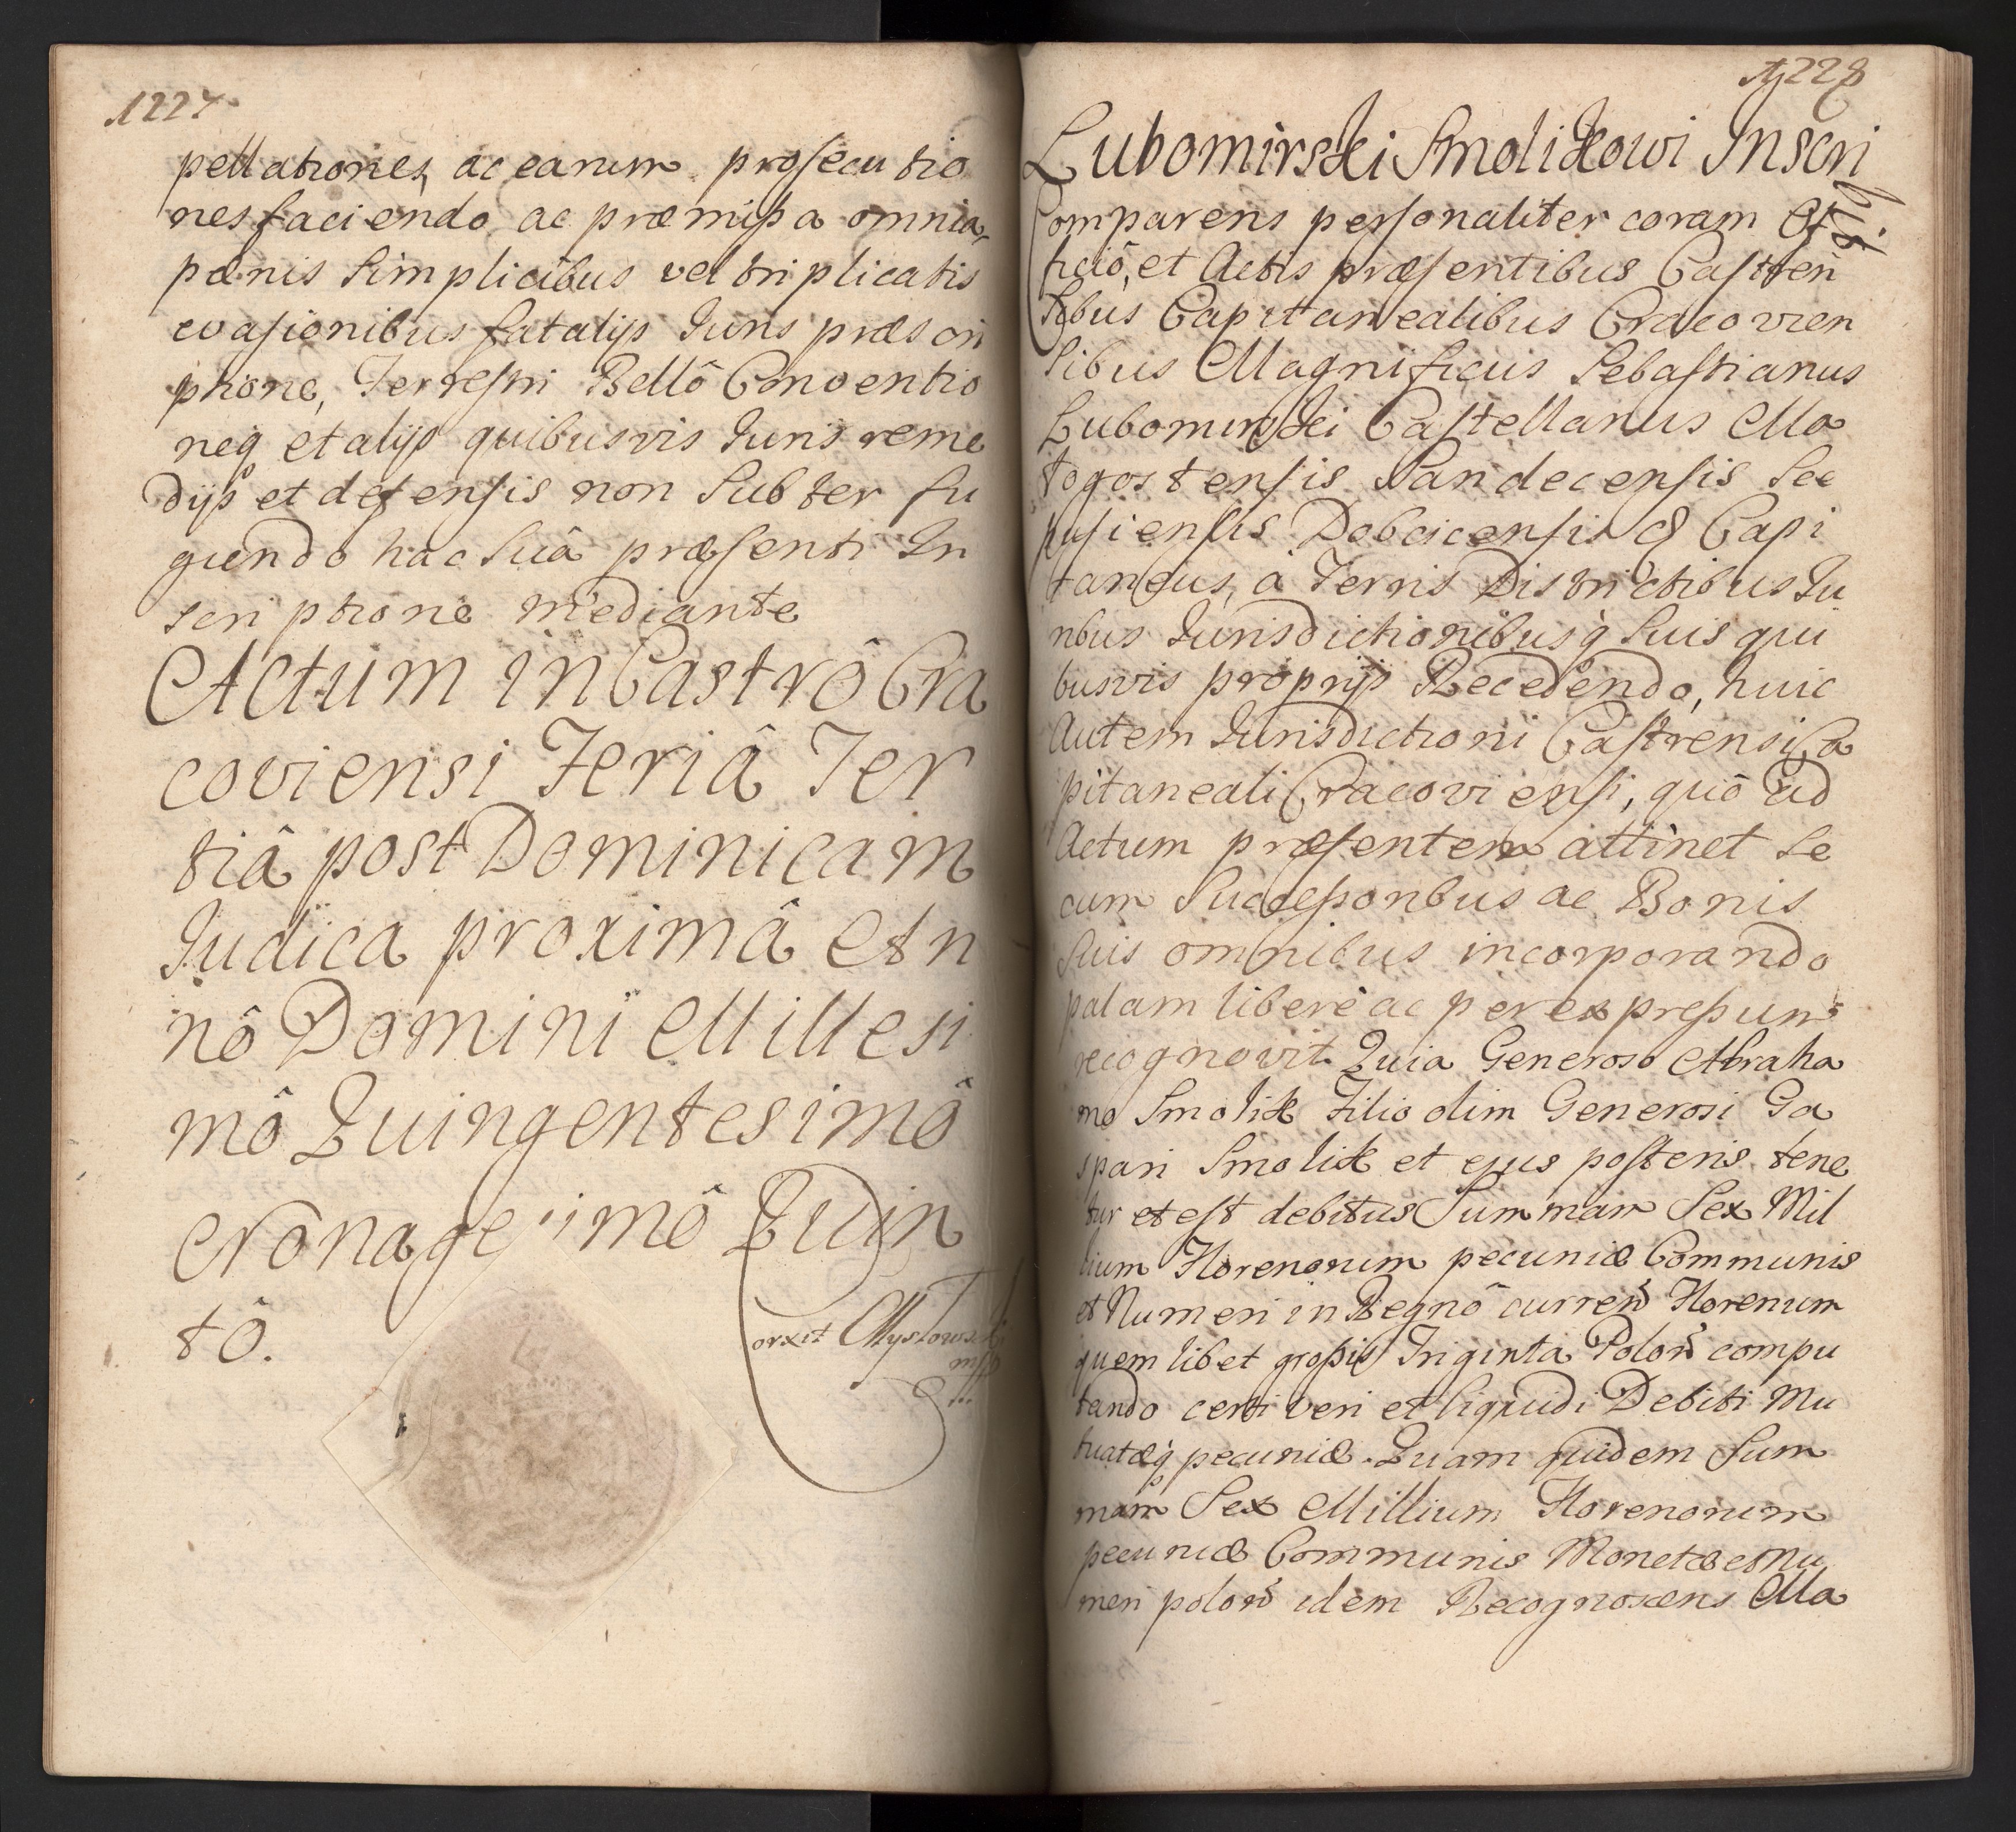 1227
pellationes, ac earum prosecutio
nes faciendo, ac præmissa omnia
pænis simplicibus vel triplicatis
evasionibus fatalijs Iuris præscri
ptione, Terrestri Bellô Conventio
neq et alijs quibusvis Iuris reme
dijs et defensis non subter fu
giendo hac suâ præsenti In
scriptione mediante
Actum in Castrô Cra
coviensi Feriâ Ter
tiâ post Dominicam
Iudica proximâ An
nô Domini Millesi
mô Quingentesimô
Nonagesimô Quin
tô.
1228
Lubomirski Smolikowi Inscri
bit.
Comparens personaliter coram Of
ficiô, et Actis præsentibus Castren
sibus Capitanealibus Cracovien
sibus Magnificus Sebastianus
Lubomirski Castellanus Ma
togostensis Sandecensis Sce
pusiensis Dobcicensis & Capi
taneus, à Terris Districtibus Iu
ribus Iurisdictionibusq suis qui
busvis proprijs Recedendo, huic
Autem Iurisdictioni Castrensi Ca
pitaneali Cracoviensi, quô ad
Actum præsentem attinet se
cum Successoribus ac Bonis
suis omnibus incorporando
palam liberè ac per expressum
recognovit Quia Generoso Abraha
mo Smolik Filio olim Generosi Ga
spari Smolik et ejus posteris tene
tur et est debitus Summam Sex Mil
lium Florenorum pecuniæ Communis
et Numeri in Regnô curren Florenum
quemlibet grossis Triginta Polon compu
tando certi veri et liquidi Debiti Mu
tuatæq pecuniæ. Quam quidem Sum
mam Sex Millium Florenorum
pecuniæ Communis Monetæ et Nu
meri polon idem Recognoscens Ma